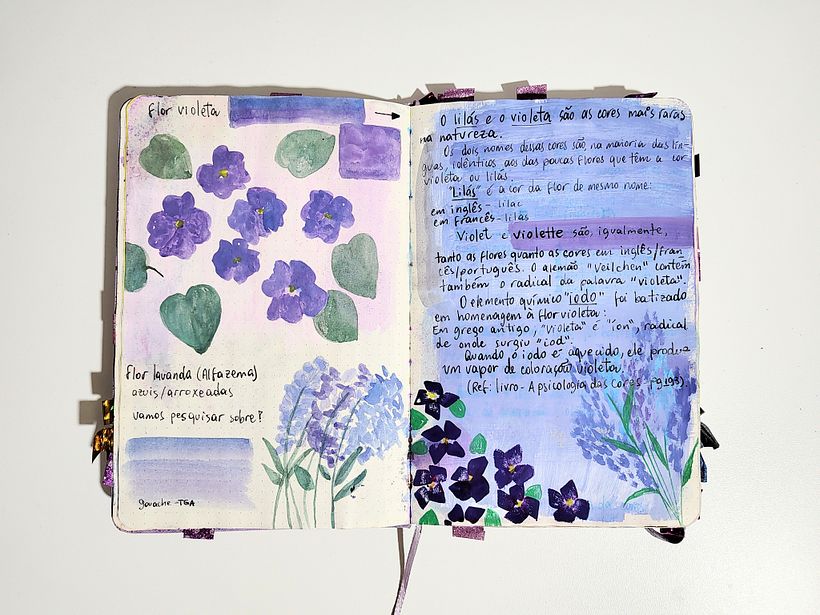 Flor violeta
Flor lavanda (Alfazema)
azuis/arroxeadas
vamos pesquisar sobre?
gouache - TGA
O lilás e o violeta são as cores mais raras
na natureza.
Os dois nomes dessas cores são, na maioria das lín-
guas, idênticos aos das poucas flores que têm a cor
violeta ou lilás.
"Lilás" é a cor da flor de mesmo nome:
em inglês - lilac
em francês - lilás
Violet e violette são, igualmente,
tanto as flores quanto as cores em inglês/fran-
cês/português. O alemão "Veilchen" contém
também o radical da palavra "violeta".
O elemento químico "iodo" foi batizado
em homenagem à flor violeta:
Em grego antigo, "violeta" é "íon", radical
de onde surgiu "iod".
Quando o iodo é aquecido, ele produz
um vapor de coloração violeta.
(Ref: livro - A psicologia das cores - pg 193)